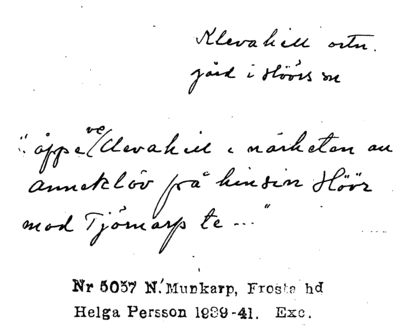 Klevahill ortn.
järd i Höörs sn
"åppe ve Klevahill i närheten av
Anneklöv på hinsin Höör
mod Tjörnarp te..."
Nr 5037 N. Munkarp, Frosta hd
Helga Persson 1939-41. Exc.